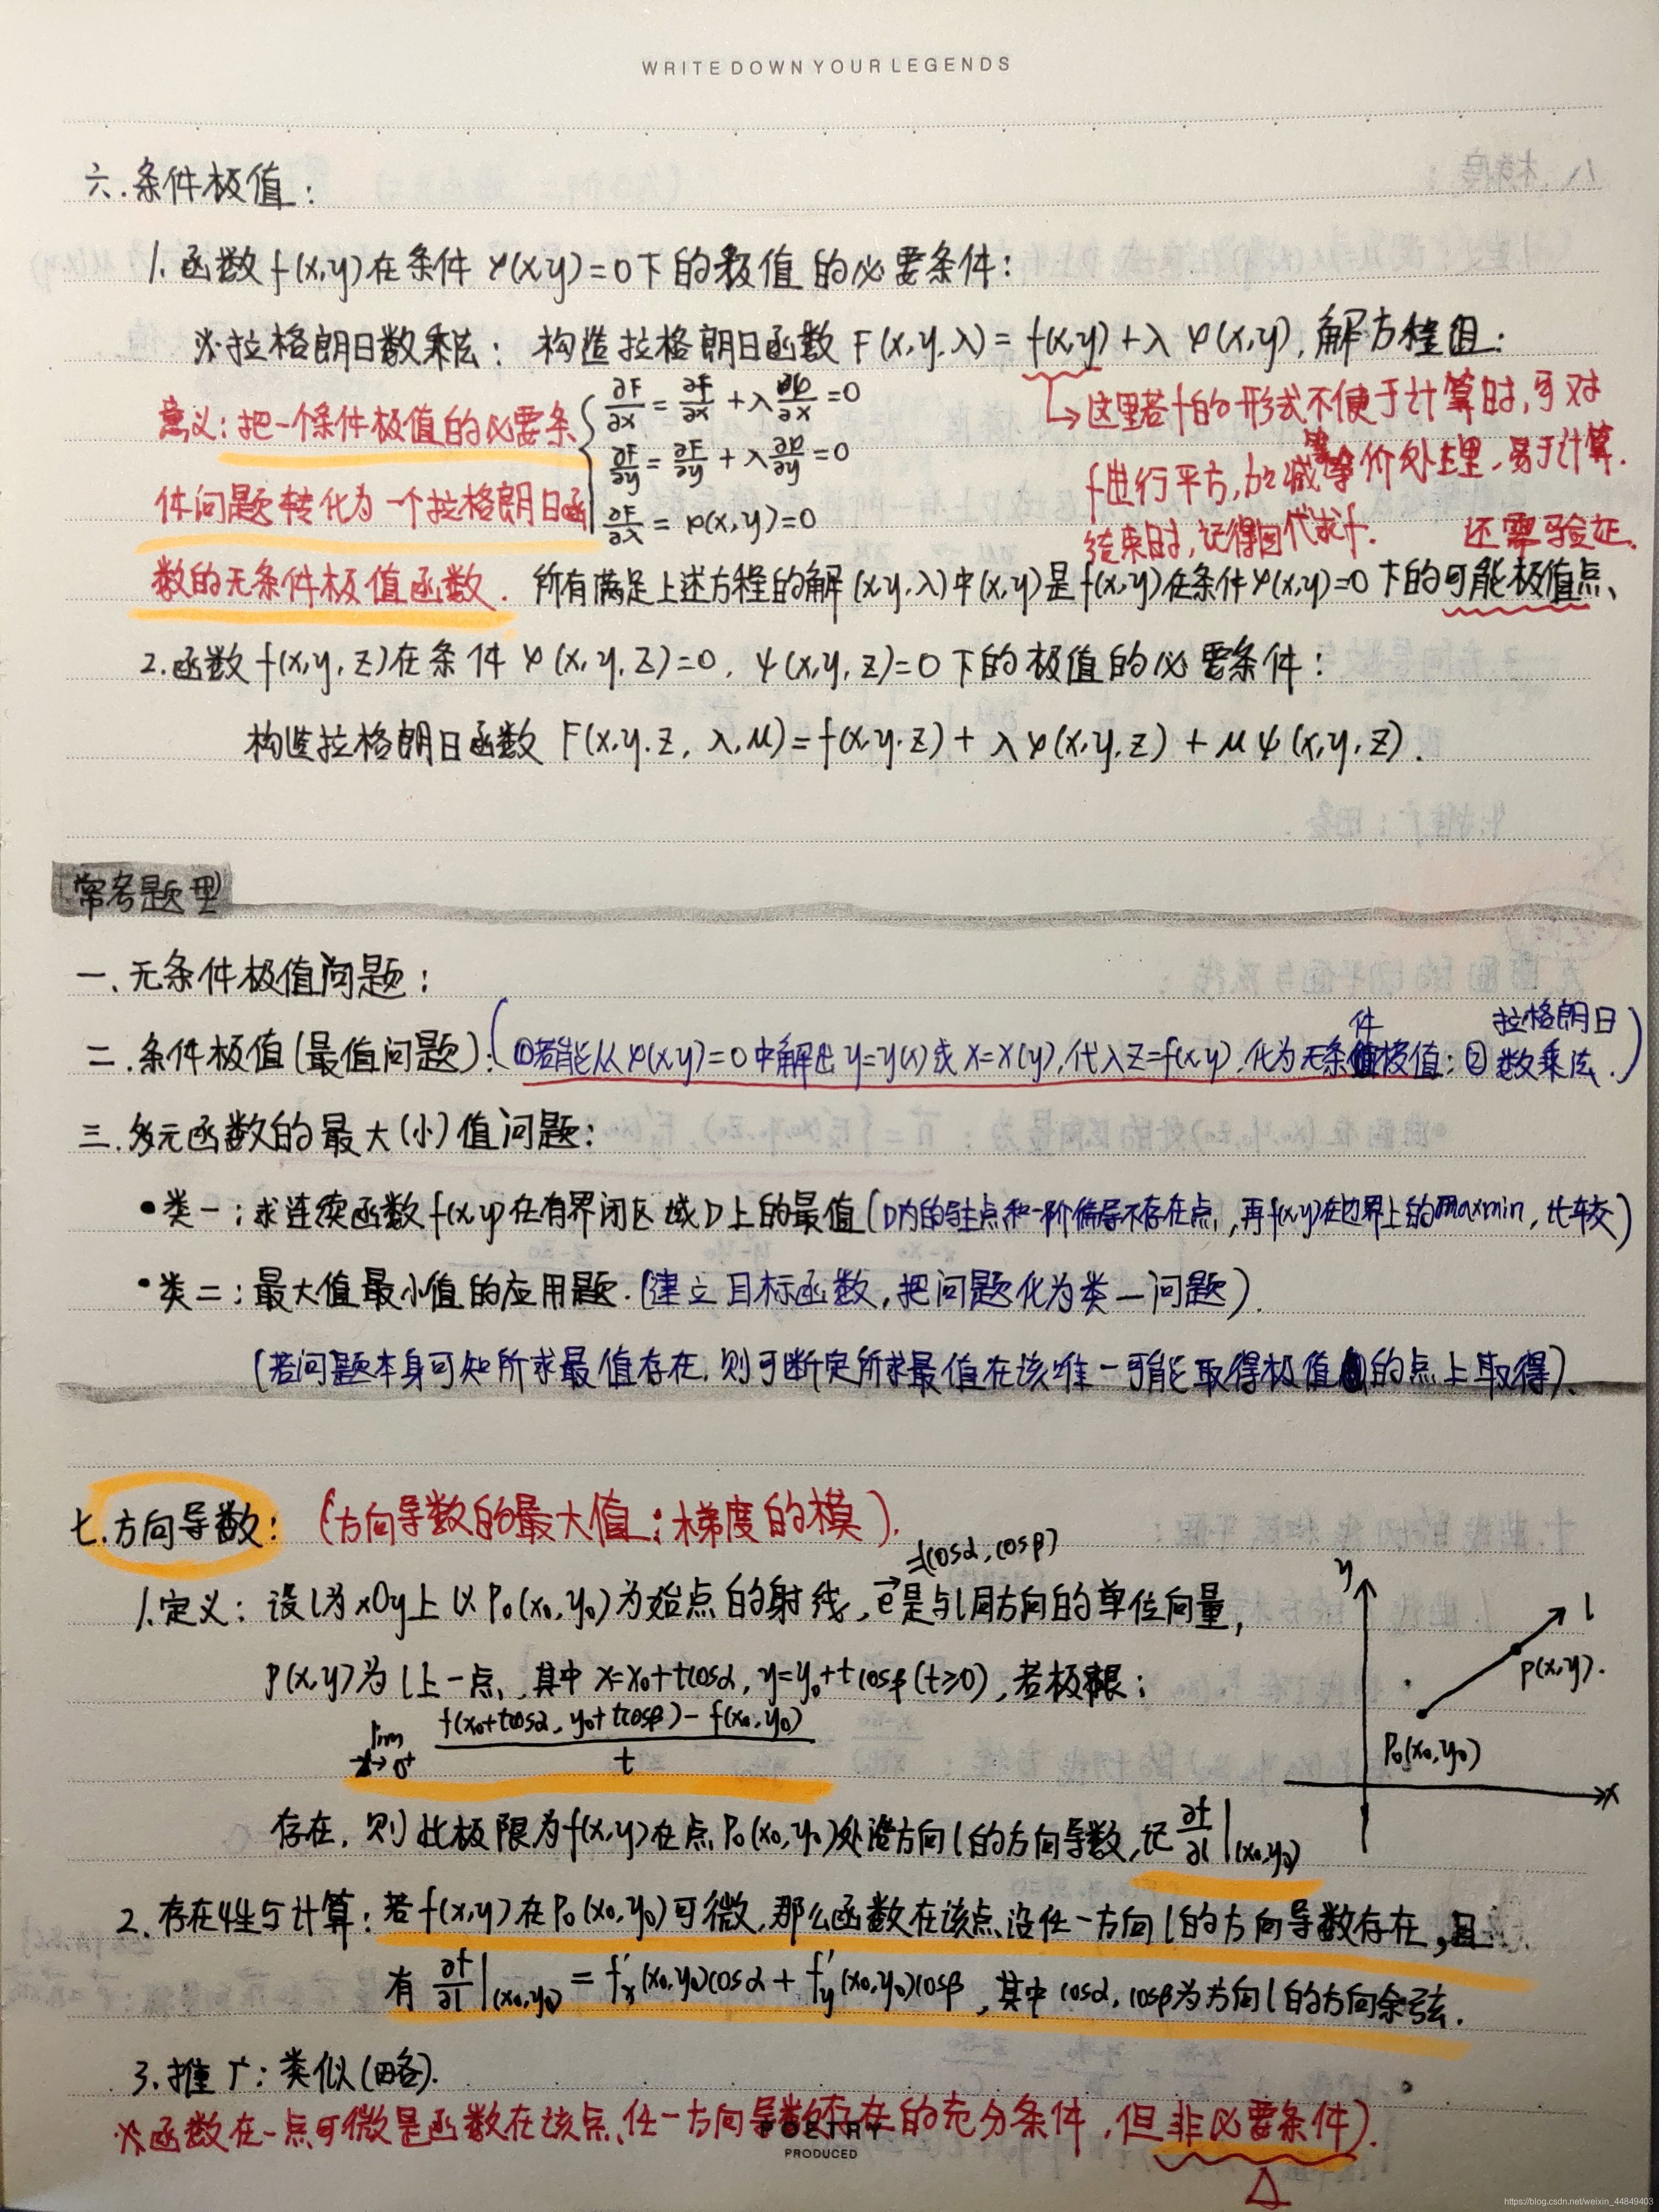 WRITE DOWN YOUR LEGENDS
六.条件极值:
1.函数f(x,y)在条件φ(x,y)=0下的极值的必要条件:
※拉格朗日数乘法: 构造拉格朗日函数F(x,y,λ)=f(x,y)+λφ(x,y),解方程组:
∂F/∂x=∂f/∂x+λ∂φ/∂x=0
∂F/∂y=∂f/∂y+λ∂φ/∂y=0
∂F/∂λ=φ(x,y)=0
意义:把一个条件极值的必要条
件问题转化为一个拉格朗日函
数的无条件极值函数.
→这里若f的形式不便于计算时,可对
f进行平方,加减等价处理,易于计算.
结束时,记得回代求f.
还需验证.
所有满足上述方程的解(x,y,λ)中(x,y)是f(x,y)在条件φ(x,y)=0下的可能极值点、
2.函数f(x,y,z)在条件φ(x,y,z)=0,ψ(x,y,z)=0下的极值的必要条件:
构造拉格朗日函数F(x,y,z,λ,μ)=f(x,y,z)+λφ(x,y,z)+μψ(x,y,z).
常考题型
一.无条件极值问题:
二.条件极值(最值问题):(①若能从φ(x,y)=0中解出y=y(x)或x=x(y),代入z=f(x,y),化为无条件极值;②拉格朗日数乘法.)
三.多元函数的最大(小)值问题:
•类一:求连续函数f(x,y)在有界闭区域D上的最值(D内的驻点和一阶偏导不存在点,再f(x,y)在边界上的maxmin,比较)
•类二:最大值最小值的应用题.(建立目标函数,把问题化为类一问题).
(若问题本身可知所求最值存在,则可断定所求最值在该唯一可能取得极值的点上取得).
七.方向导数: (方向导数的最大值:梯度的模).
=(cosα,cosβ)
1.定义: 设l为xOy上以P₀(x₀,y₀)为始点的射线,e⃗是与l同方向的单位向量,
P(x,y)为l上一点,其中x=x₀+tcosα,y=y₀+tcosβ(t≥0),若极限:
lim t→0⁺ [f(x₀+tcosα,y₀+tcosβ)-f(x₀,y₀)]/t
y
l
P(x,y).
P₀(x₀,y₀)
x
存在,则此极限为f(x,y)在点P₀(x₀,y₀)处沿方向l的方向导数,记∂f/∂l|(x₀,y₀)
2.存在性与计算:若f(x,y)在P₀(x₀,y₀)可微,那么函数在该点沿任一方向l的方向导数存在,且
有∂f/∂l|(x₀,y₀)=f'x(x₀,y₀)cosα+f'y(x₀,y₀)cosβ,其中cosα,cosβ为方向l的方向余弦.
3.推广:类似(略).
※函数在一点可微是函数在该点任一方向导数存在的充分条件,但非必要条件).
POETRY
PRODUCED
https://blog.csdn.net/weixin_44849403